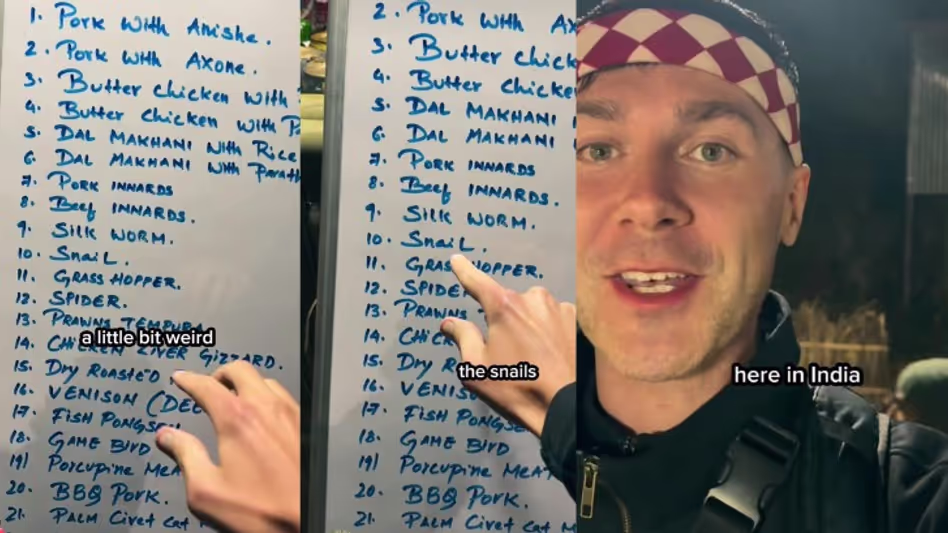 1. Pork with Anishe.
2. Pork with Axone.
3. Butter chicken with
4. Butter chicken with P
5. DAL MAKHANI with Rice
6. DAL MAKHANI with Parath
7. PORK INNARDS
8. Beef INNARDS.
9. SILK WORM.
10. SnaiL.
11. GRASS HOPPER.
12. SPIDER.
13. PRAWNS TEMPURA
a little bit weird
14. CHICKEN LIVER GIZZARD.
15. Dry ROASTED
16. VENISON (DEE
17. FISH PONGSEN
18. GAME BIRD
19) Porcupine MEA
20. BBQ PORK.
21. PALM Civet cat M
2. Pork with Ax
3. Butter chick
4. Butter chicke
5. DAL MAKHANI
6. DAL MAKHANI
7. PORK INNARDS
8. Beef INNARDS.
9. SILK WORM.
10. SnaiL.
11. GRASS HOPPER.
12. SPIDE
13. PRAWNS
14. CHICK
15. Dry R
the snails
16. VENISO
17. FISH PONGSE
18. GAME BIRD
19) Porcupine MEAT
20. BBQ PORK.
21. PALM Civet cat M
here in India